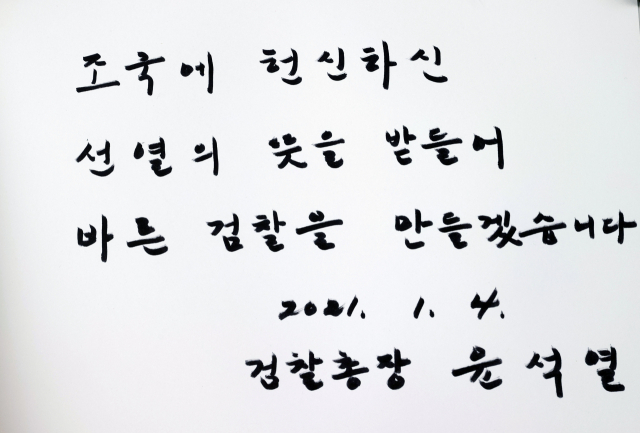 조국에 헌신하신
선열의 뜻을 받들어
바른 검찰을 만들겠습니다
2021. 1. 4.
검찰총장 윤석열